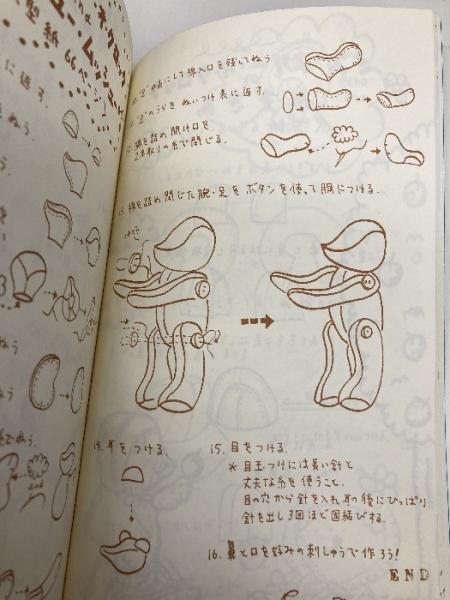 型紙
に返す。
表に返す。
にして綿入口を残してぬう
のうらをぬいつけ表に返す。
綿を詰め開け口を
2本取りの糸で閉じる。
綿を詰め閉じた腕・足をボタンを使って胴につける。
14. 耳をつける。
15. 目をつける。
* 目玉つけには長い針と
丈夫な糸を使うこと。
目の穴から針を入れ耳の後にひっぱり
針を出し3回ほど固結びする。
16. 鼻と口を好みの刺しゅうで作ろう!
END